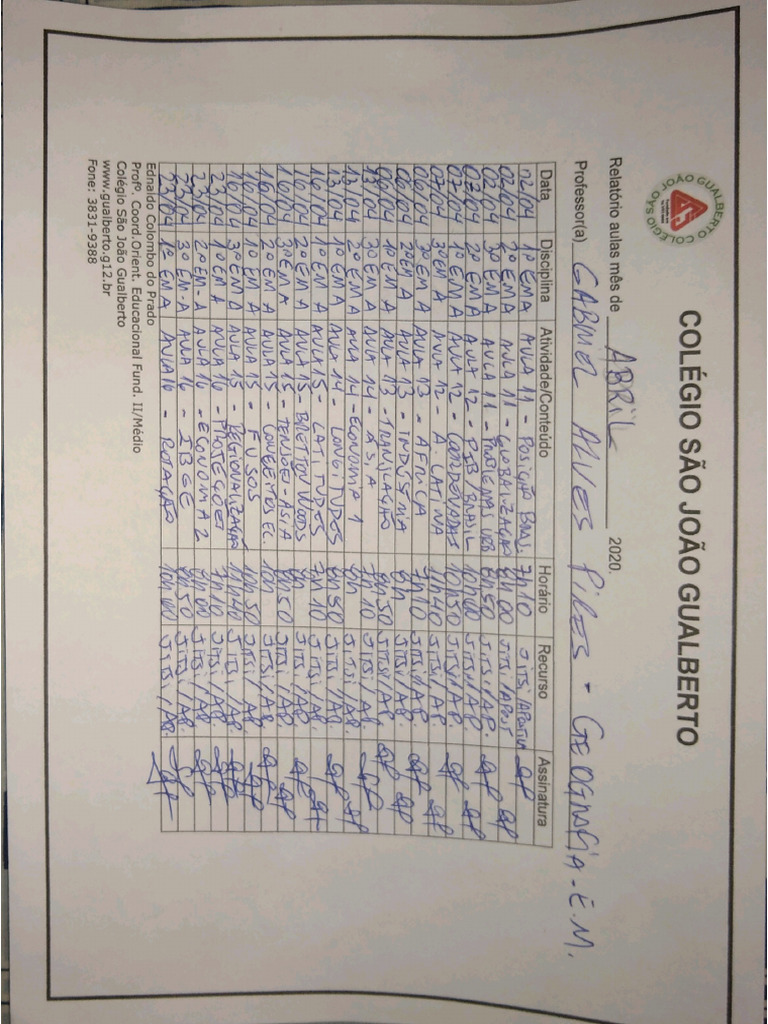 COLÉGIO SÃO JOÃO GUALBERTO
COLÉGIO SÃO JOÃO GUALBERTO
Relatório aulas mês de ABRIL 2020.
Professor(a) GABRIEL ALVES PIRES - GEOGRAFIA - E.M.
Data Disciplina Atividade/Conteúdo Horário Recurso Assinatura
02/04 1º EM A AULA 11 - POSIÇÃO BRAS. 7h10 JITSI/APOSTILA
02/04 2º EM A AULA 11 - GLOBALIZAÇÃO 8h00 JITSI/APOST
02/04 3º EM A AULA 11 - PROBLEMAS URB 8h50 JITSI/AP.
07/04 2º EM A AULA 12 - PIB/BRASIL 10h00 JITSI/AP.
07/04 1º EM A AULA 12 - COORDENADAS 10h50 JITSI/AP.
07/04 3º EM A AULA 12 - A. LATINA 11h40 JITSI/AP.
06/04 3º EM A AULA 13 - ÁFRICA 7h10 JITSI/AP.
06/04 2º EM A AULA 13 - INDÚSTRIA 8h JITSI/AP.
06/04 1º EM A AULA 13 - TRANSLAÇÃO 8h50 JITSI/AP.
13/04 3º EM A AULA 14 - ÁSIA 7h10 JITSI/AP.
13/04 2º EM A AULA 14 - ECONOMIA 1 8h JITSI/AP.
13/04 1º EM A AULA 14 - LONGITUDES 8h50 JITSI/AP.
16/04 1º EM A AULA 15 - LATITUDES 7h10 JITSI/AP.
16/04 2º EM A AULA 15 - BRETTON WOODS 8h JITSI/AP.
16/04 3º EM A AULA 15 - TENSÕES - ASIA 8h50 JITSI/AP.
16/04 2º EM A AULA 15 - CONCEITOS EC. 10h JITSI/AP.
16/04 1º EM A AULA 15 - FUSOS 10h50 JITSI/AP.
16/04 3º EM A AULA 15 - REGIONALIZAÇÃO 11h40 JITSI/AP.
23/04 1º EM A AULA 16 - PROJEÇÕES 7h10 JITSI/AP.
23/04 2º EM-A AULA 16 - ECONOMIA 2 8h00 JITSI/AP.
23/04 3º EM-A AULA 16 - IBGE 8h50 JITSI/AP.
23/04 1º EM A AULA 16 - ROTAÇÃO 10h00 JITSI/AP.
Ednaldo Colombo do Prado
Profº. Coord.Orient. Educacional Fund. II/Médio
Colégio São João Gualberto
www.gualberto.g12.br
Fone: 3831-9388